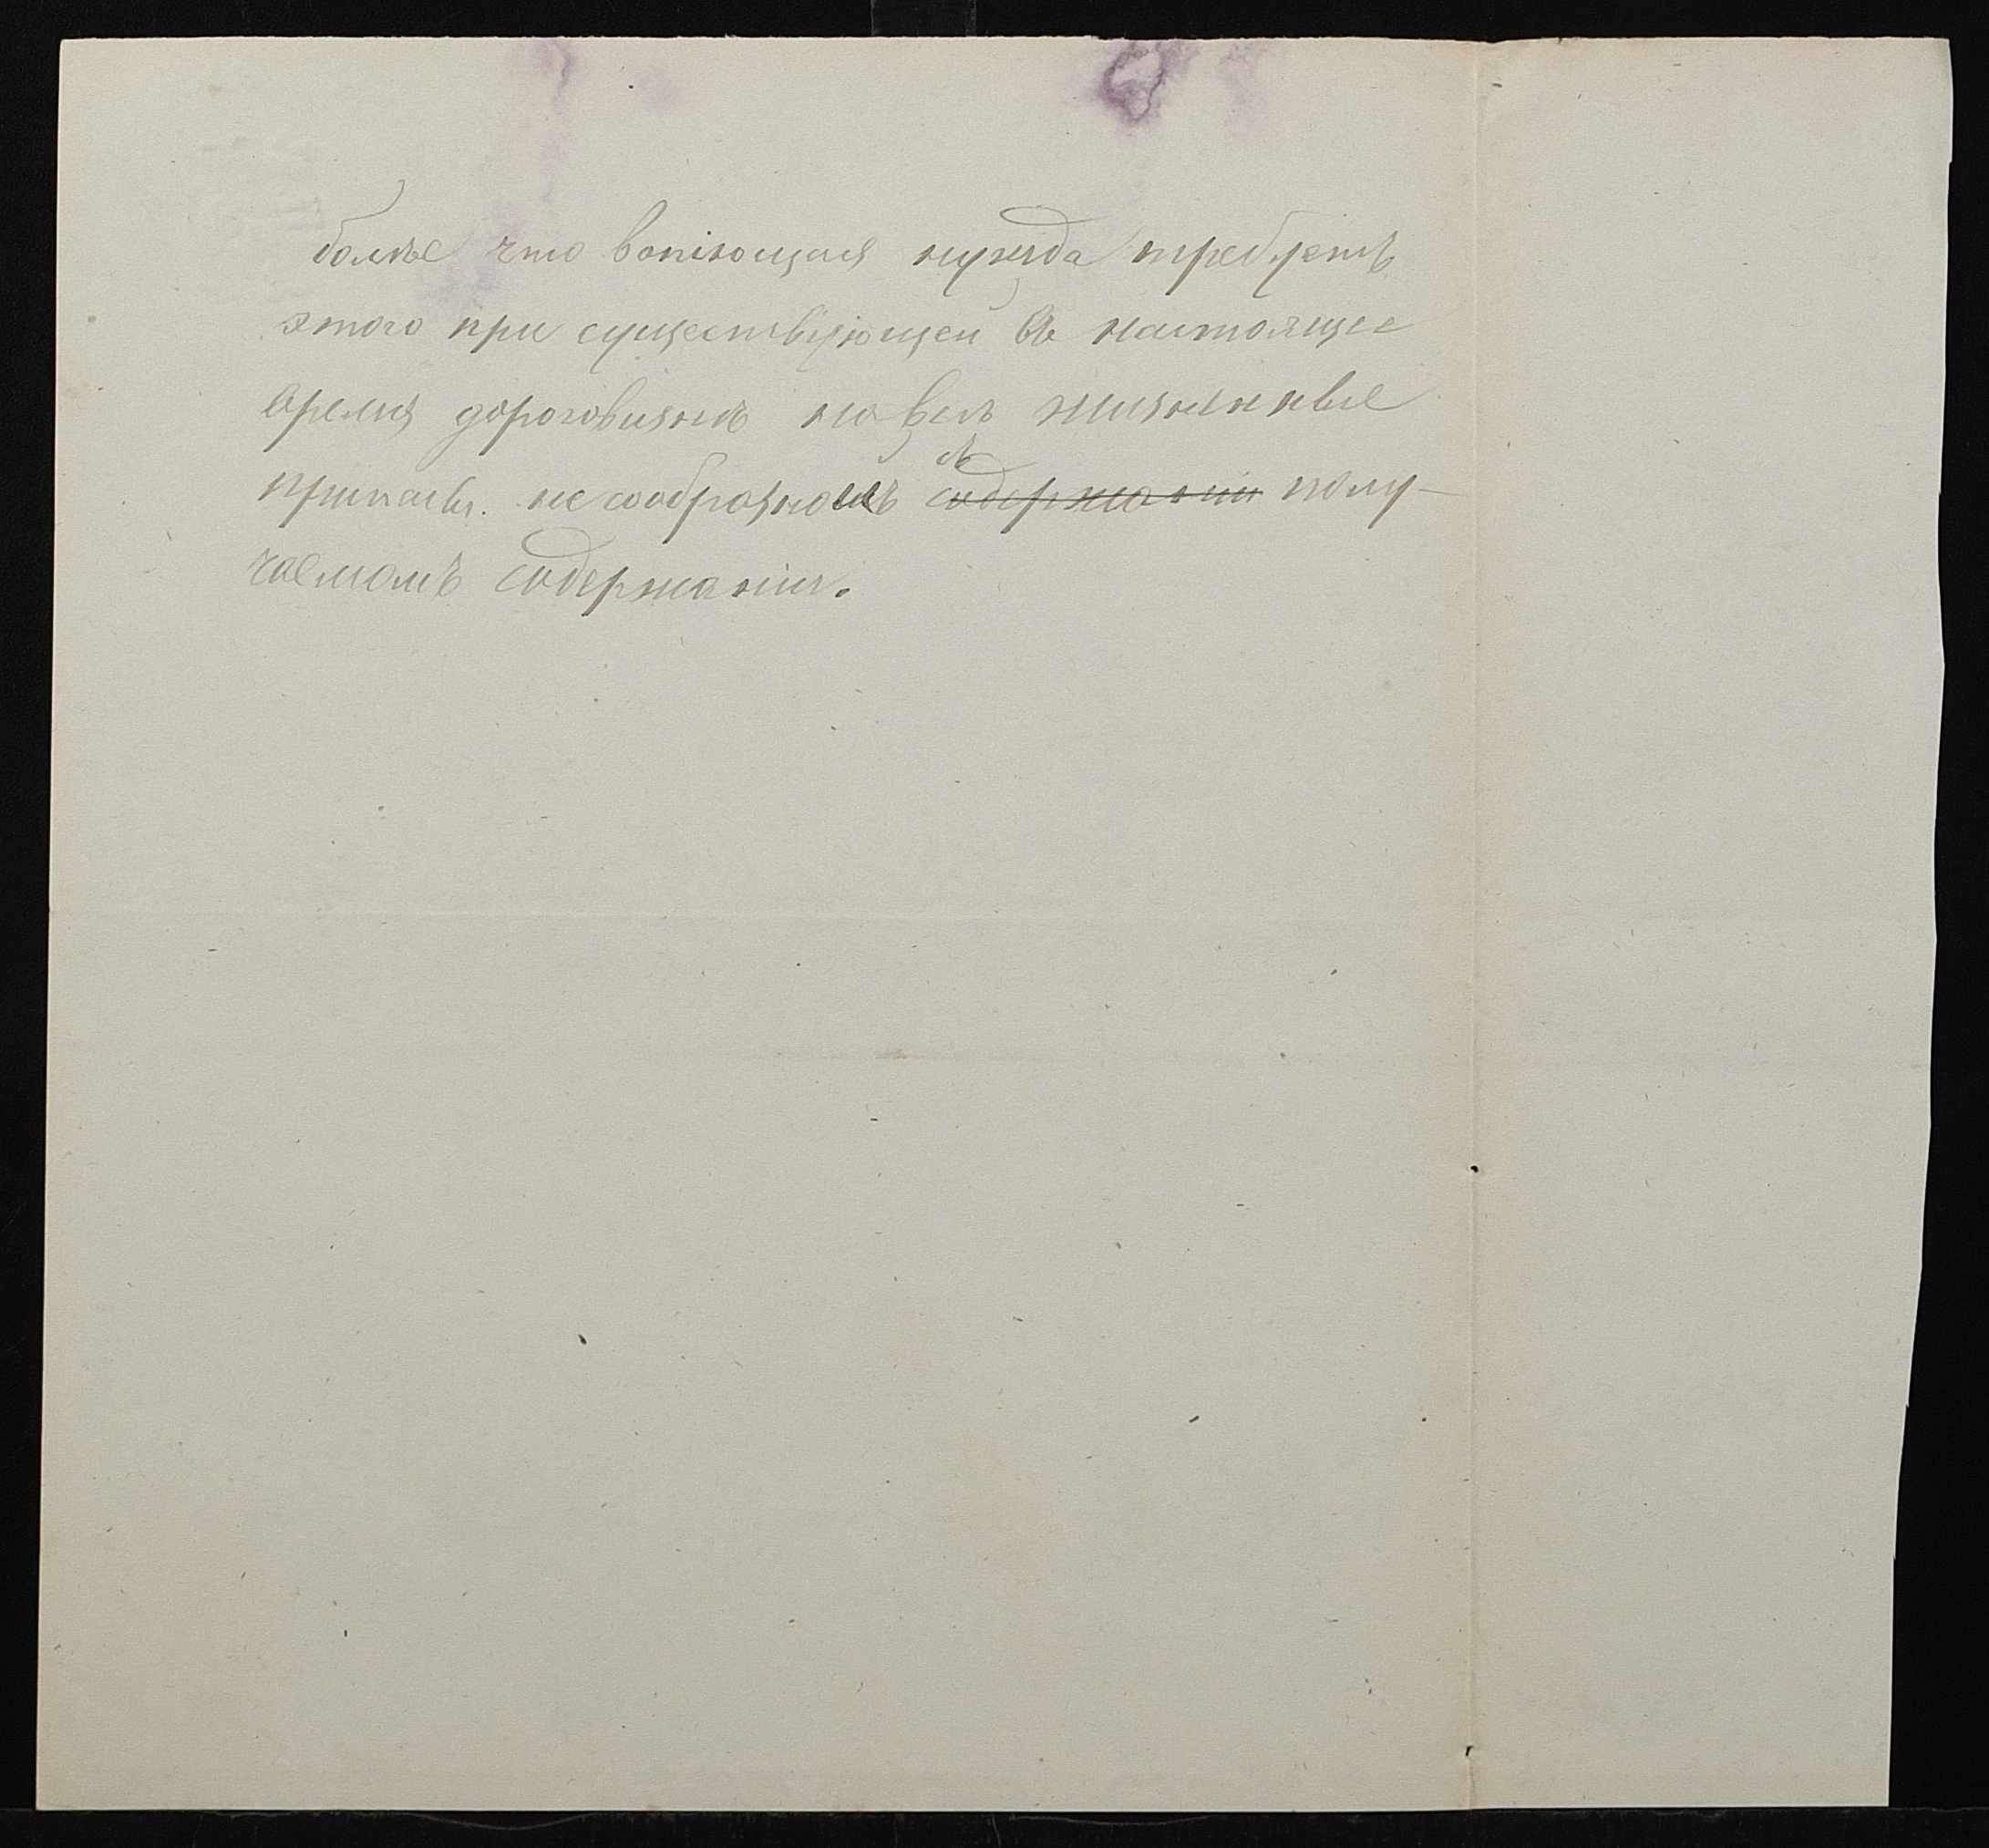 болѣе что вопіющая нужда требуетъ
этого при существующей въ настоящее
время дороговизнѣ на всѣ жизненные
припасы. не сообразномъ съ содержаніи полу-
чаемомъ содержаніи.